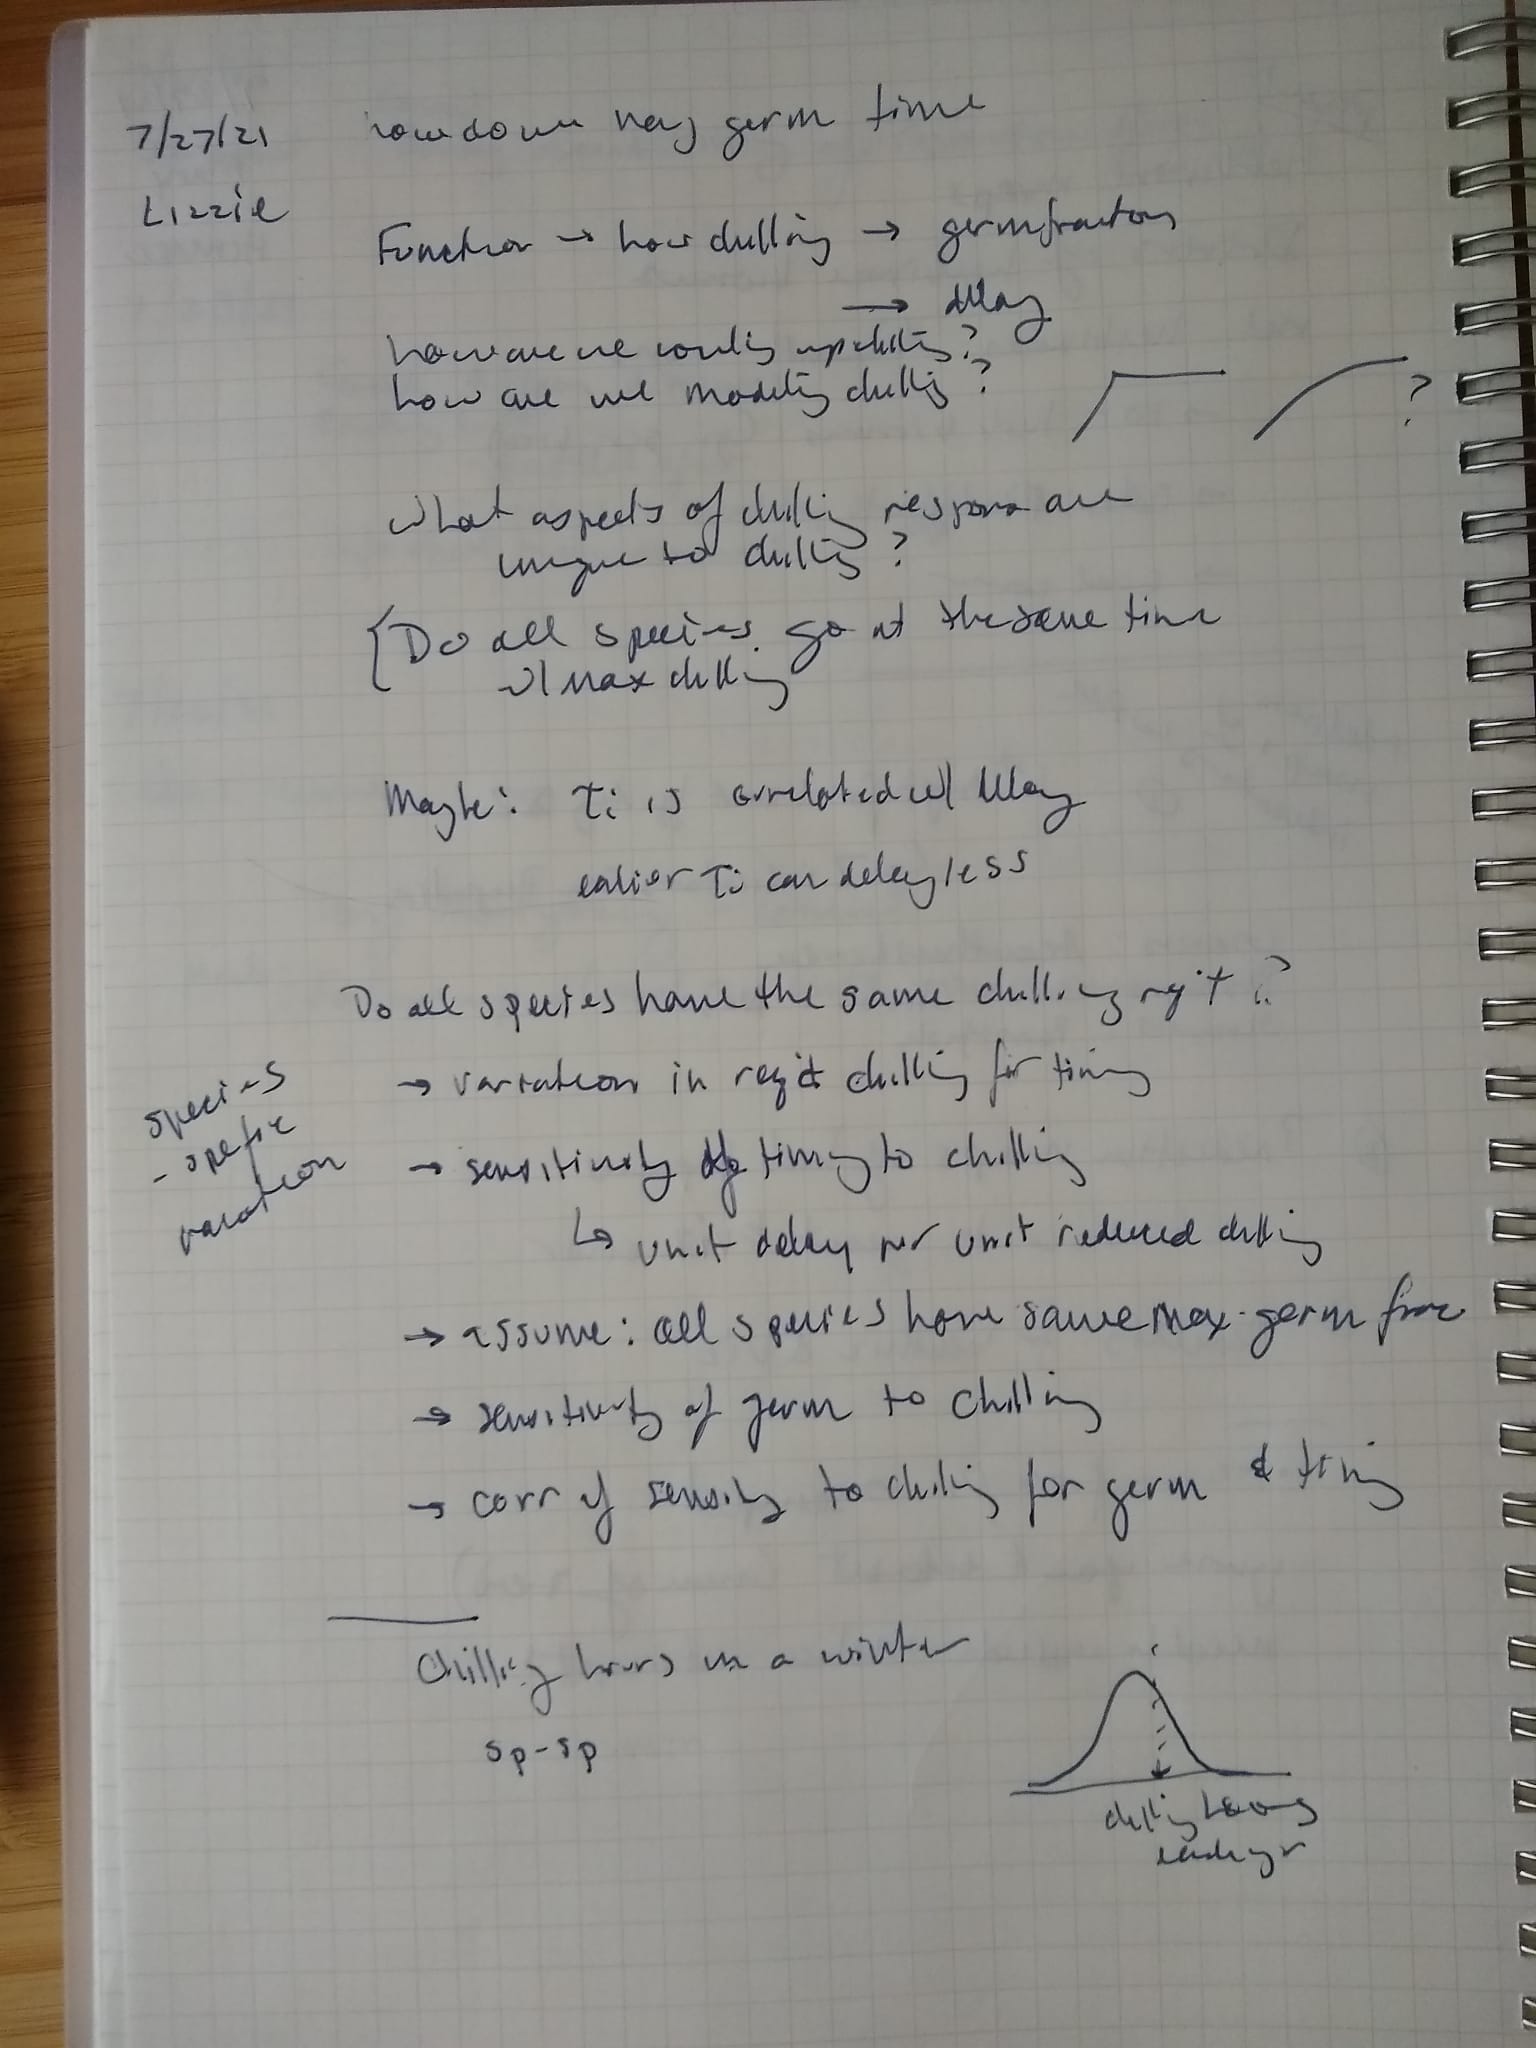 7/27/21
how do we vary germ time
Lizzie
Function → how chilling → germ fraction
→ delay
how are we
how are we modeling chilling?
?
What aspects of chilling response are
unique to chilling?
Do all species go at the same time
w/ max chilling
Maybe: τi is correlated w/ delay
earlier τi can delay less
Do all species have the same chilling req't?
→ variation in req'd chilling for timing
species
-specific
variation
→ sensitivity of timing to chilling
↳ unit delay per unit reduced chilling
→ assume: all species have same max germ frac
→ sensitivity of germ to chilling
→ corr of sensitivity to chilling for germ & timing
Chilling hours in a winter
sp-sp
chilling hours
each yr